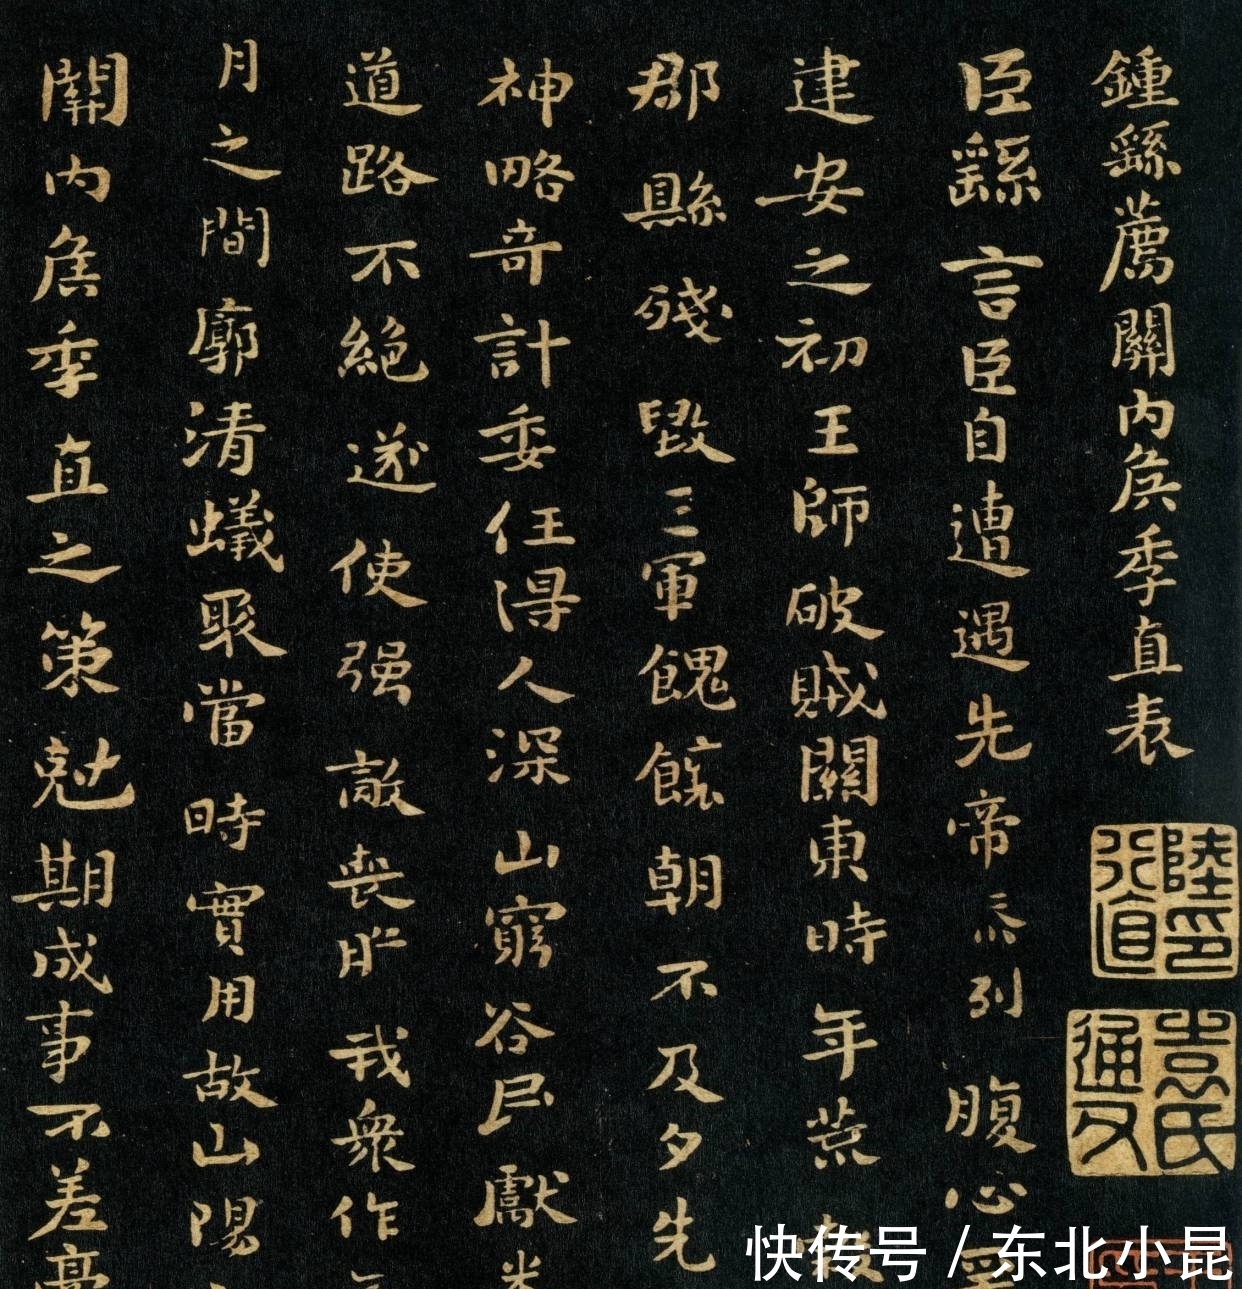 鍾繇薦關內侯季直表
臣繇言臣自遭遇先帝忝列腹心
建安之初王師破賊關東時年荒
郡縣殘毀三軍餽饟朝不及夕先
神略奇計委任得人深山窮谷民獻米
道路不絕遂使强敵喪膽我衆作
月之間廓清蟻聚當時實用故山陽
關內侯季直之策尅期成事不差毫
陸行直印
袁氏通父
快传号/东北小昆